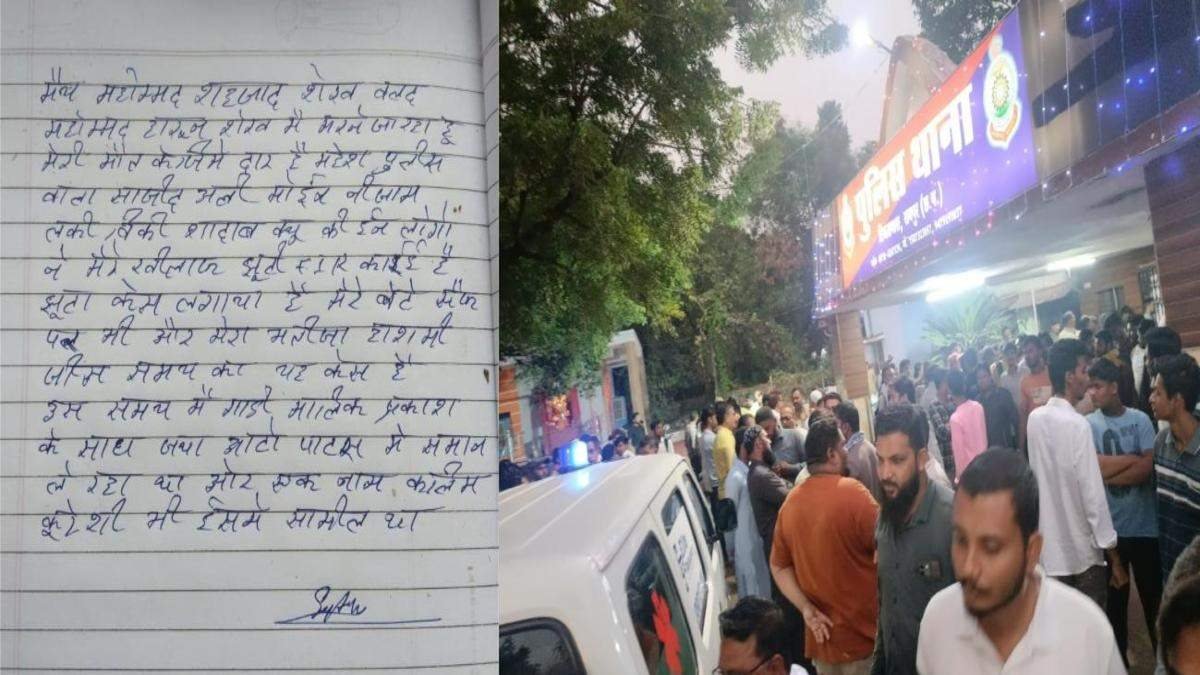 मैय महोम्मद शहजाद शेख वलद
महोम्मद हारून शेख मै मरने जा रहा हू
मेरी मौत के जिमे दार है महेश पुलीस
वाला साजीद अली मोईन नीजाम
लकी विकी शादाब क्यू की ईन लोगो
ने मेरे खीलाफ झूटी FIR काईई है
झूटा केस लगाया है मेरे बेटे सैफ
पर भी और मेरा भतीजा हाशमी
जीस समय का यह केस है
इस समय मै गाडी मालिक प्रकाश
के साथ जया ओटो पाटस मे समान
ले रहा था और एक नाम कलिम
कूरेशी भी ईसमे सामील था
पुलिस थाना
रायपुर (छ.ग.)